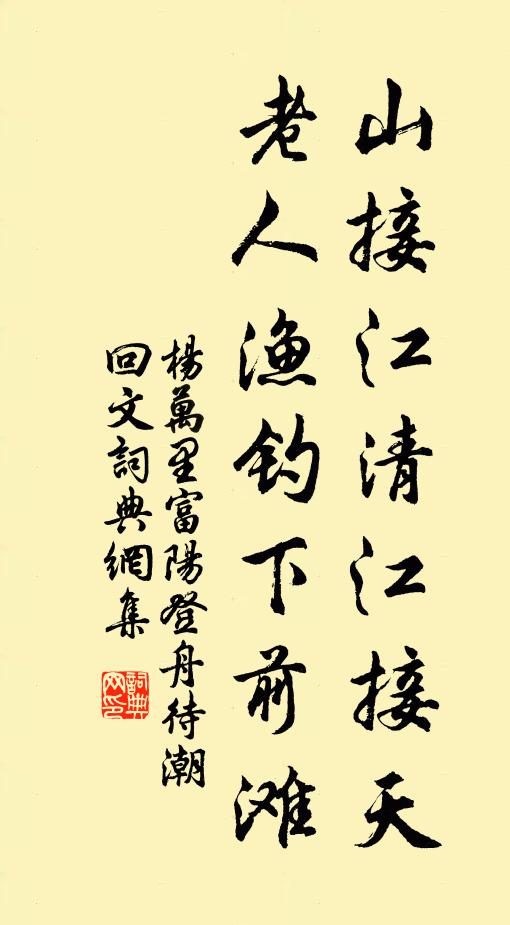 山接江清江接天
老人渔钓下前滩
楊萬里富陽登舟待潮
回文詞典網集
詞典
网印